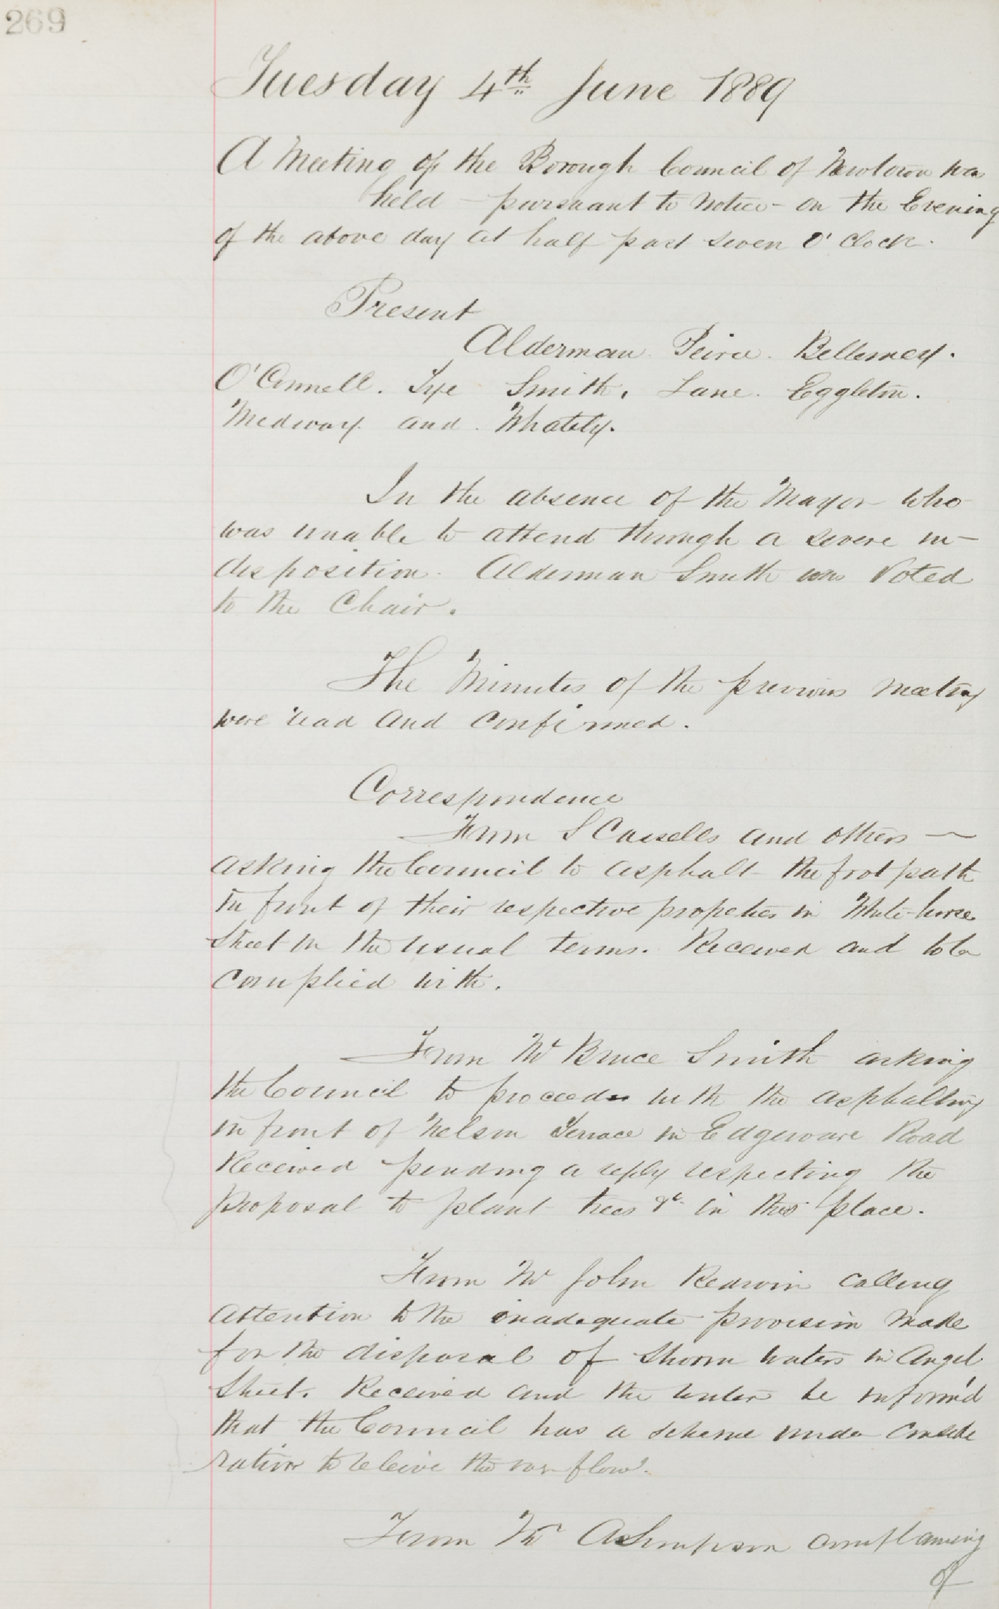 269
Tuesday 4th June 1889
A Meeting of the Borough Council of Newtown was
held - pursuant to Notice - on the Evening
of the above day at half past seven O'Clock.
Present
Alderman Peirce. Bellemey.
O'Connell. Tye Smith, Lane. Eggleton.
Medway and Whately.
In the absence of the Mayor who
was unable to attend through a severe in-
disposition. Alderman Smith was Voted
to the Chair.
The Minutes of the previous meeting
were read and confirmed.
Correspondence
From S Cassells and others -
asking the Council to asphalt the footpath
in front of their respective propeties in White horse
Street on the usual terms. Received and to be
complied with.
From Mr Bruce Smith asking
the Council to proceed with the asphalting
in front of Nelson Terrace in Edgeware Road
Received pending a reply respecting the
proposal to plant trees &c in this place.
From Mr John calling
attention to the inadequate provision made
for the disposal of storm waters in Angel
Street. Received and the writer be inform'd
that the Council has a scheme under conside
ration to releive the overflow.
From Mr A Simpson complaining
of